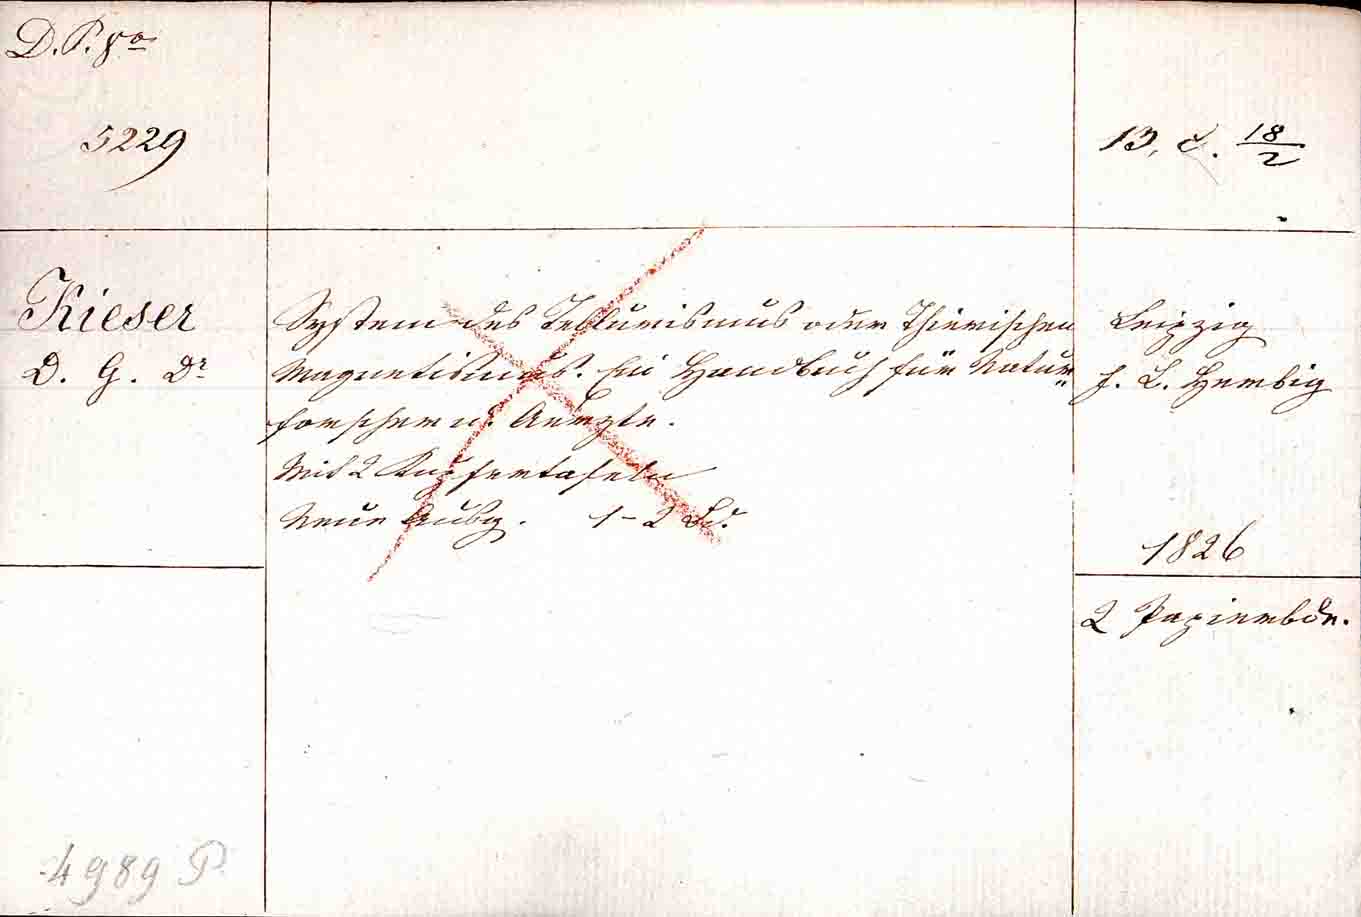 D. P. 8º
5229
13. c. 18/2
Kieser
D. G. Dr
System des Tellurismus oder Thierischen
Magnetismus. Ein Handbuch für Natur„
forscher u. Aerzte.
Mit 2 Kupfertafeln
Neue Ausg. 1-2 Bd.
Leipzig
F. L. Herbig
1826
2 Papierbde.
4989 P